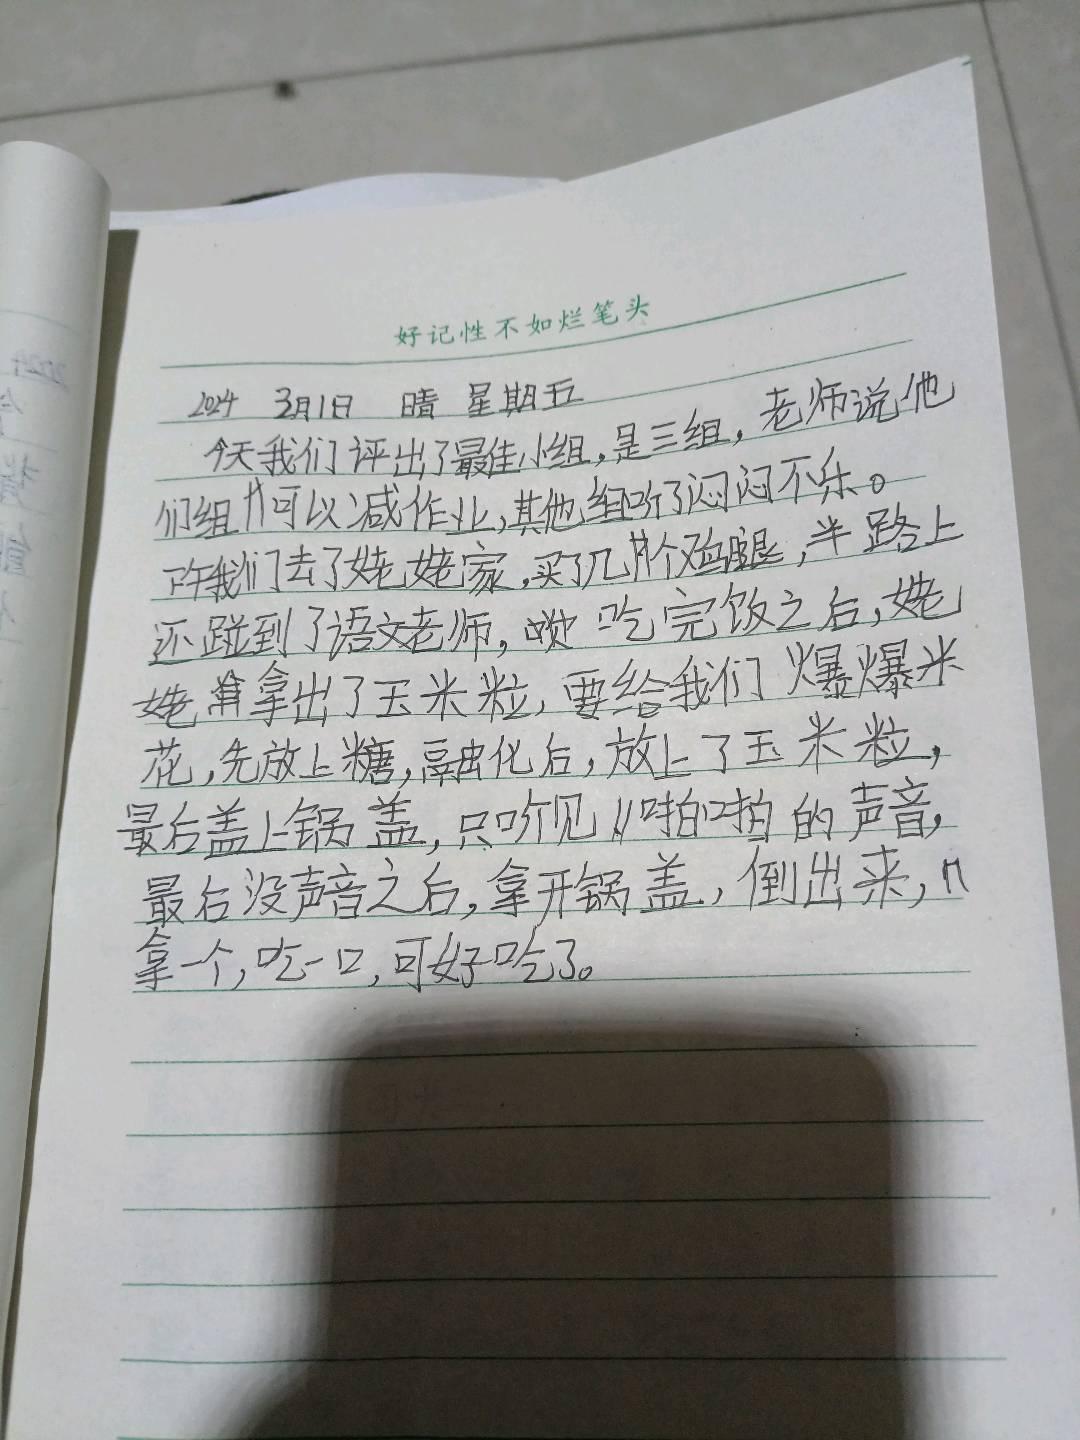 好记性不如烂笔头
2024 3月1日 晴 星期五
今天我们评出了最佳小组,是三组,老师说他
们组可以减作业,其他组听了闷闷不乐。
下午我们去了姥姥家,买了几个鸡腿,半路上
还碰到了语文老师,吃完饭之后,姥
姥拿出了玉米粒,要给我们爆爆米
花,先放上糖,融化后,放上了玉米粒,
最后盖上锅盖,只听见啪啪的声音,
最后没声音之后,拿开锅盖,倒出来,
拿一个,吃一口,可好吃了。
2024